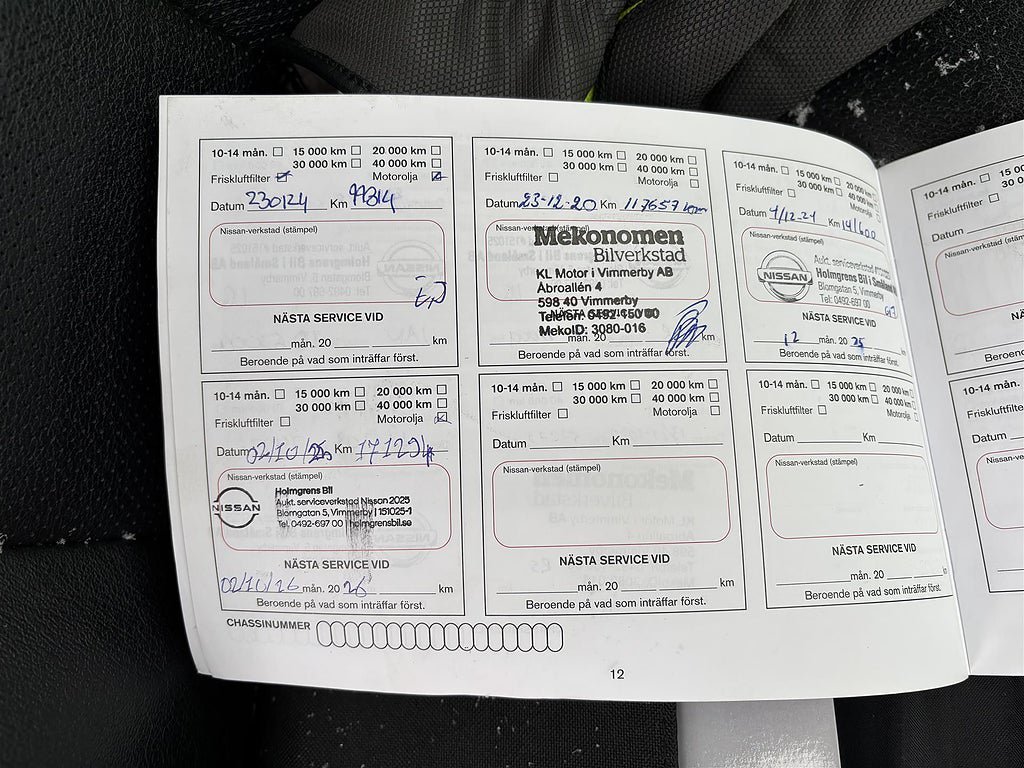 10-14 mån. 15 000 km 20 000 km
30 000 km 40 000 km
Friskluftfilter Motorolja
Datum 230124 Km 99314
Nissan-verkstad (stämpel)
NÄSTA SERVICE VID
mån. 20 km
Beroende på vad som inträffar först.
10-14 mån. 15 000 km 20 000 km
30 000 km 40 000 km
Friskluftfilter Motorolja
Datum 23-12-20 Km 117657 km
Nissan-verkstad (stämpel)
Mekonomen
Bilverkstad
KL Motor i Vimmerby AB
Åbroallén 4
598 40 Vimmerby
NÄSTA SERVICE VID
Telefon: 0492-150 00
MekoID: 3080-016
mån. 20 km
Beroende på vad som inträffar först.
10-14 mån. 15 000 km 20 000 km
30 000 km 40 000 km
Friskluftfilter Motorolja
Datum 4/12-24 Km 141600
Nissan-verkstad (stämpel)
NISSAN
Aukt. serviceverkstad
Holmgrens Bil i Småland
Blomgatan 5, Vimmerby
Tel: 0492-697 00
NÄSTA SERVICE VID
12 mån. 20 25 km
Beroende på vad som inträffar först.
10-14 mån. 15 000 km 20 000 km
30 000 km 40 000 km
Friskluftfilter Motorolja
Datum 02/10/25 Km 171294
Nissan-verkstad (stämpel)
NISSAN
Holmgrens Bil
Aukt. serviceverkstad Nissan 2025
Blomgatan 5, Vimmerby | 151025-1
Tel. 0492-697 00 | holmgrensbil.se
NÄSTA SERVICE VID
02/10/26 mån. 20 26 km
Beroende på vad som inträffar först.
10-14 mån. 15 000 km 20 000 km
30 000 km 40 000 km
Friskluftfilter Motorolja
Datum Km
Nissan-verkstad (stämpel)
NÄSTA SERVICE VID
mån. 20 km
Beroende på vad som inträffar först.
10-14 mån. 15 000 km 20 000 km
30 000 km 40 000 km
Friskluftfilter Motorolja
Datum Km
Nissan-verkstad (stämpel)
NÄSTA SERVICE VID
mån. 20 km
Beroende på vad som inträffar först.
CHASSINUMMER
12
10-14 mån. 15
30
Friskluftfilter
Datum
Nissan-verkstad (stämpel)
Beroende
10-14 mån.
Friskluftfilter
Datum
Nissan-ve
N
Beroe